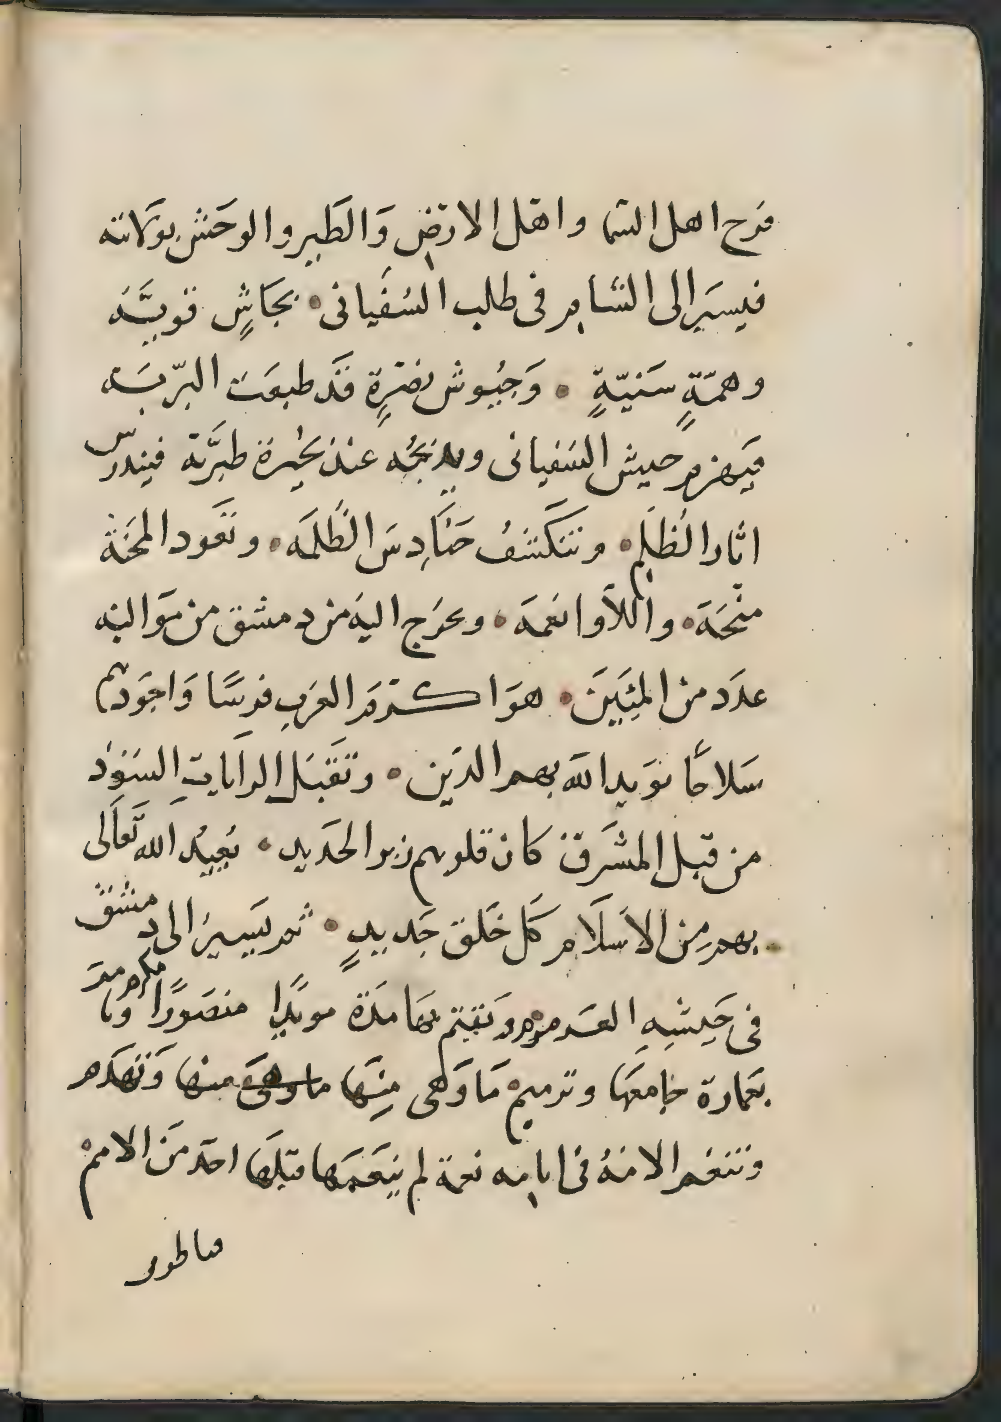 فرح اهل السما واهل الارض وَالطَير والوحَش بولايته
فيسيَر الى الشام فى طلب السُفيانى • بجَاشٍ قويَّه
وهمّةٍ سَنيّةٍ • وَجيُوش نضرةٍ قَد طبقت البرّيَه
فيَهزم جيش السَفيانى ويذبحُه عند بحُيرة طبَرَّية فيندرس
اثار الظُلم • وتنكَشفُ حنَادِسَ الظُلمَه • وتعَود المحَنة
منْحَة • واللأوا نعَمة • ويخرَج اليهَ من دمشق من مَواليه
عدَد من المئِيَن • هوَ اكرم العرَب فرسًا وَاجوَدهم
سَلاحًا يؤيد الله بهم الدَين • وتَقَبَل الرايات السَنوْد
من قبل المشَرق كان قلوبهم زبر الحدَيد • يُعِيُد الله تعَالى
بهم مِن الاسَلَام كَل خَلق جَديدٍ • ثم يسَيِرُ الى دمشق
فى جَيشِهِ العرمرم وَيقيَم بهَا مدَة مويدًا منصَورًا ويامر
بعَمارة جَامعَها وترميم مَا وَهى مِنَها ما وهىَ منها وَتهَدم
وتنعَم الامَةُ فى ايامه نعمَة لم ينعَمَها قبلَها احَد مَن الامم